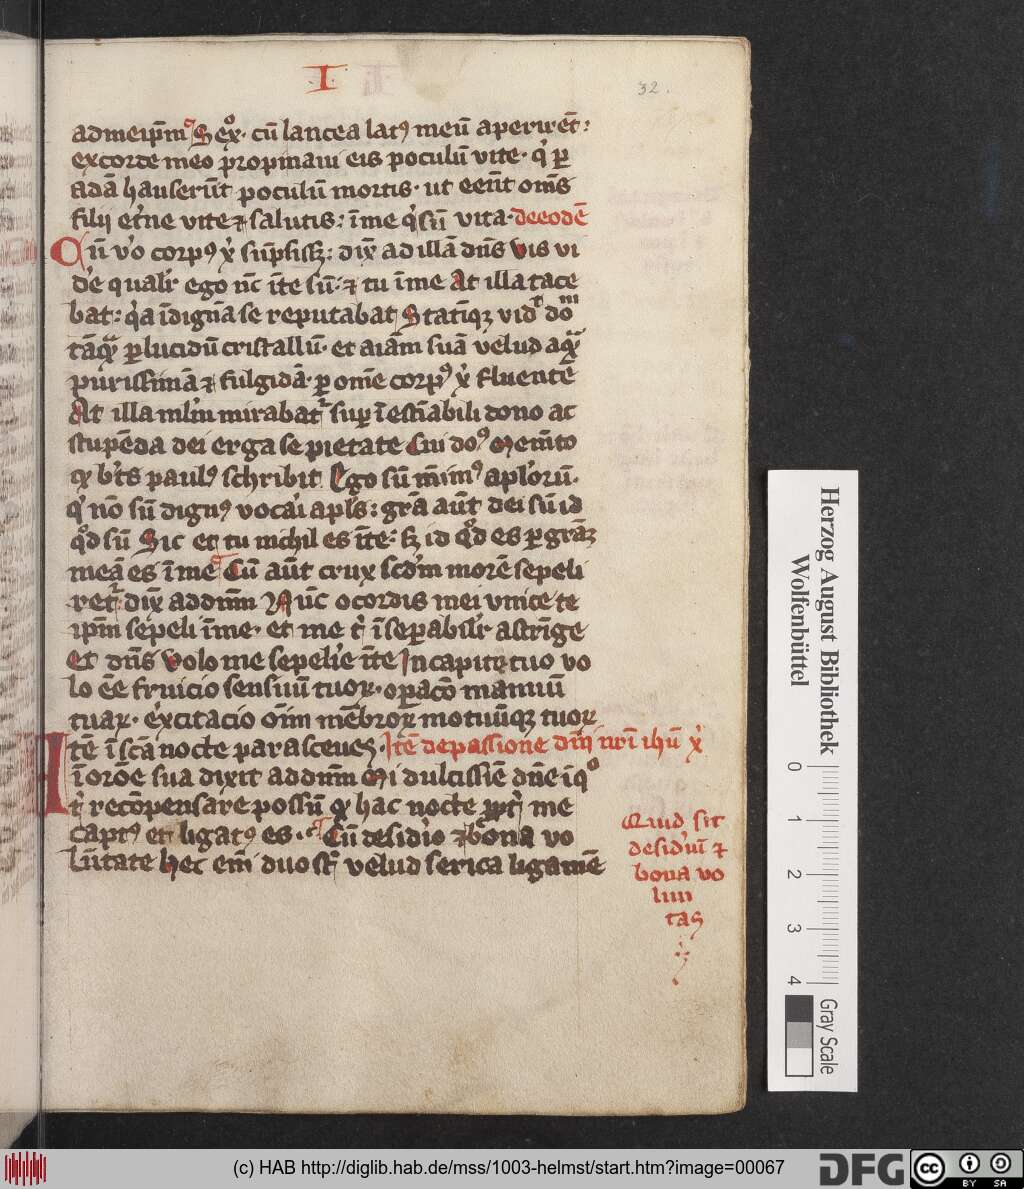 I
32.
ad meip̄m Sex͛. cū lancea latꝰ meū aperir̄et:
ex corde meo propinaui eis poculū vite. qͥ ꝑ
adā hauserūt poculū mortis. ut eēnt om̄s
filij et̕ne vite ⁊ salutis: ī me qͥ sū vita. de eodē
Cū v̕o corpꝰ xͥ sūpsissꝫ: dix̄ ad illā dn̄s vis vi
de̕ qualit̕ ego nc̄ ī te sū: ⁊ tu ī me At illa tace
bat: qͥa īdignā se reputabat Statīqꝫ vid̕ dom̄
tāqͣ ꝑlucidū cristallū. et aīam suā velud aqͣ
purissimā ⁊ fulgidā. ꝑ om̄e corpꝰ xͥ fluentē
At illa ml̄m mirabat͛ suꝑ īestīabili dono ac
stupēda dei erga se pietate Cui doꝰ Mem̄to
qꝫ bt̄s paulꝰ schribit Ego sū mīmꝰ apl̕orū.
qͥ nō sū dignꝰ vocāi apl̄s: grā aūt dei sū id
qͦd sū Sic et tu nichil es ī te: sꝫ id qͦd es ꝑ grāꝫ
meā es ī me Cū aūt crux scd̄m morē sepeli
ret͛: dix̄ ad dnm̄ Nūc o cordis mei vnice te
ip̄m sepeli ī me. et me tͥ īseꝑabilit̕ astrīge
Et dn̄s Volo me sepeli̕e ī te In capite tuo vo
lo eē fruicio sensuū tuoꝝ. oꝑacō manuū
tuaꝝ. excitacio oīm mēbroꝝ motuūqꝫ tuoꝝ
Itē ī scā nocte parasceues Itē de passione dnī nrī ihū xͥ
ī orōe sua dixit ad dnm̄ Mi dulcissīe dn̄e ī qͦ
tͥ recōpensare possū qꝫ hac nocte ꝓpt̕ me
captꝰ et ligatꝰ es. Cū desid̕io ⁊ bona vo
lūtate hec em̄ duo st̄ velud serica ligamē
Quid sit
desid̕iū ⁊
bona vo
lun
tas
Herzog August Bibliothek
Wolfenbüttel
0 1 2 3 4
Gray Scale
(c) HAB http://diglib.hab.de/mss/1003-helmst/start.htm?image=00067
DFG
cc BY SA